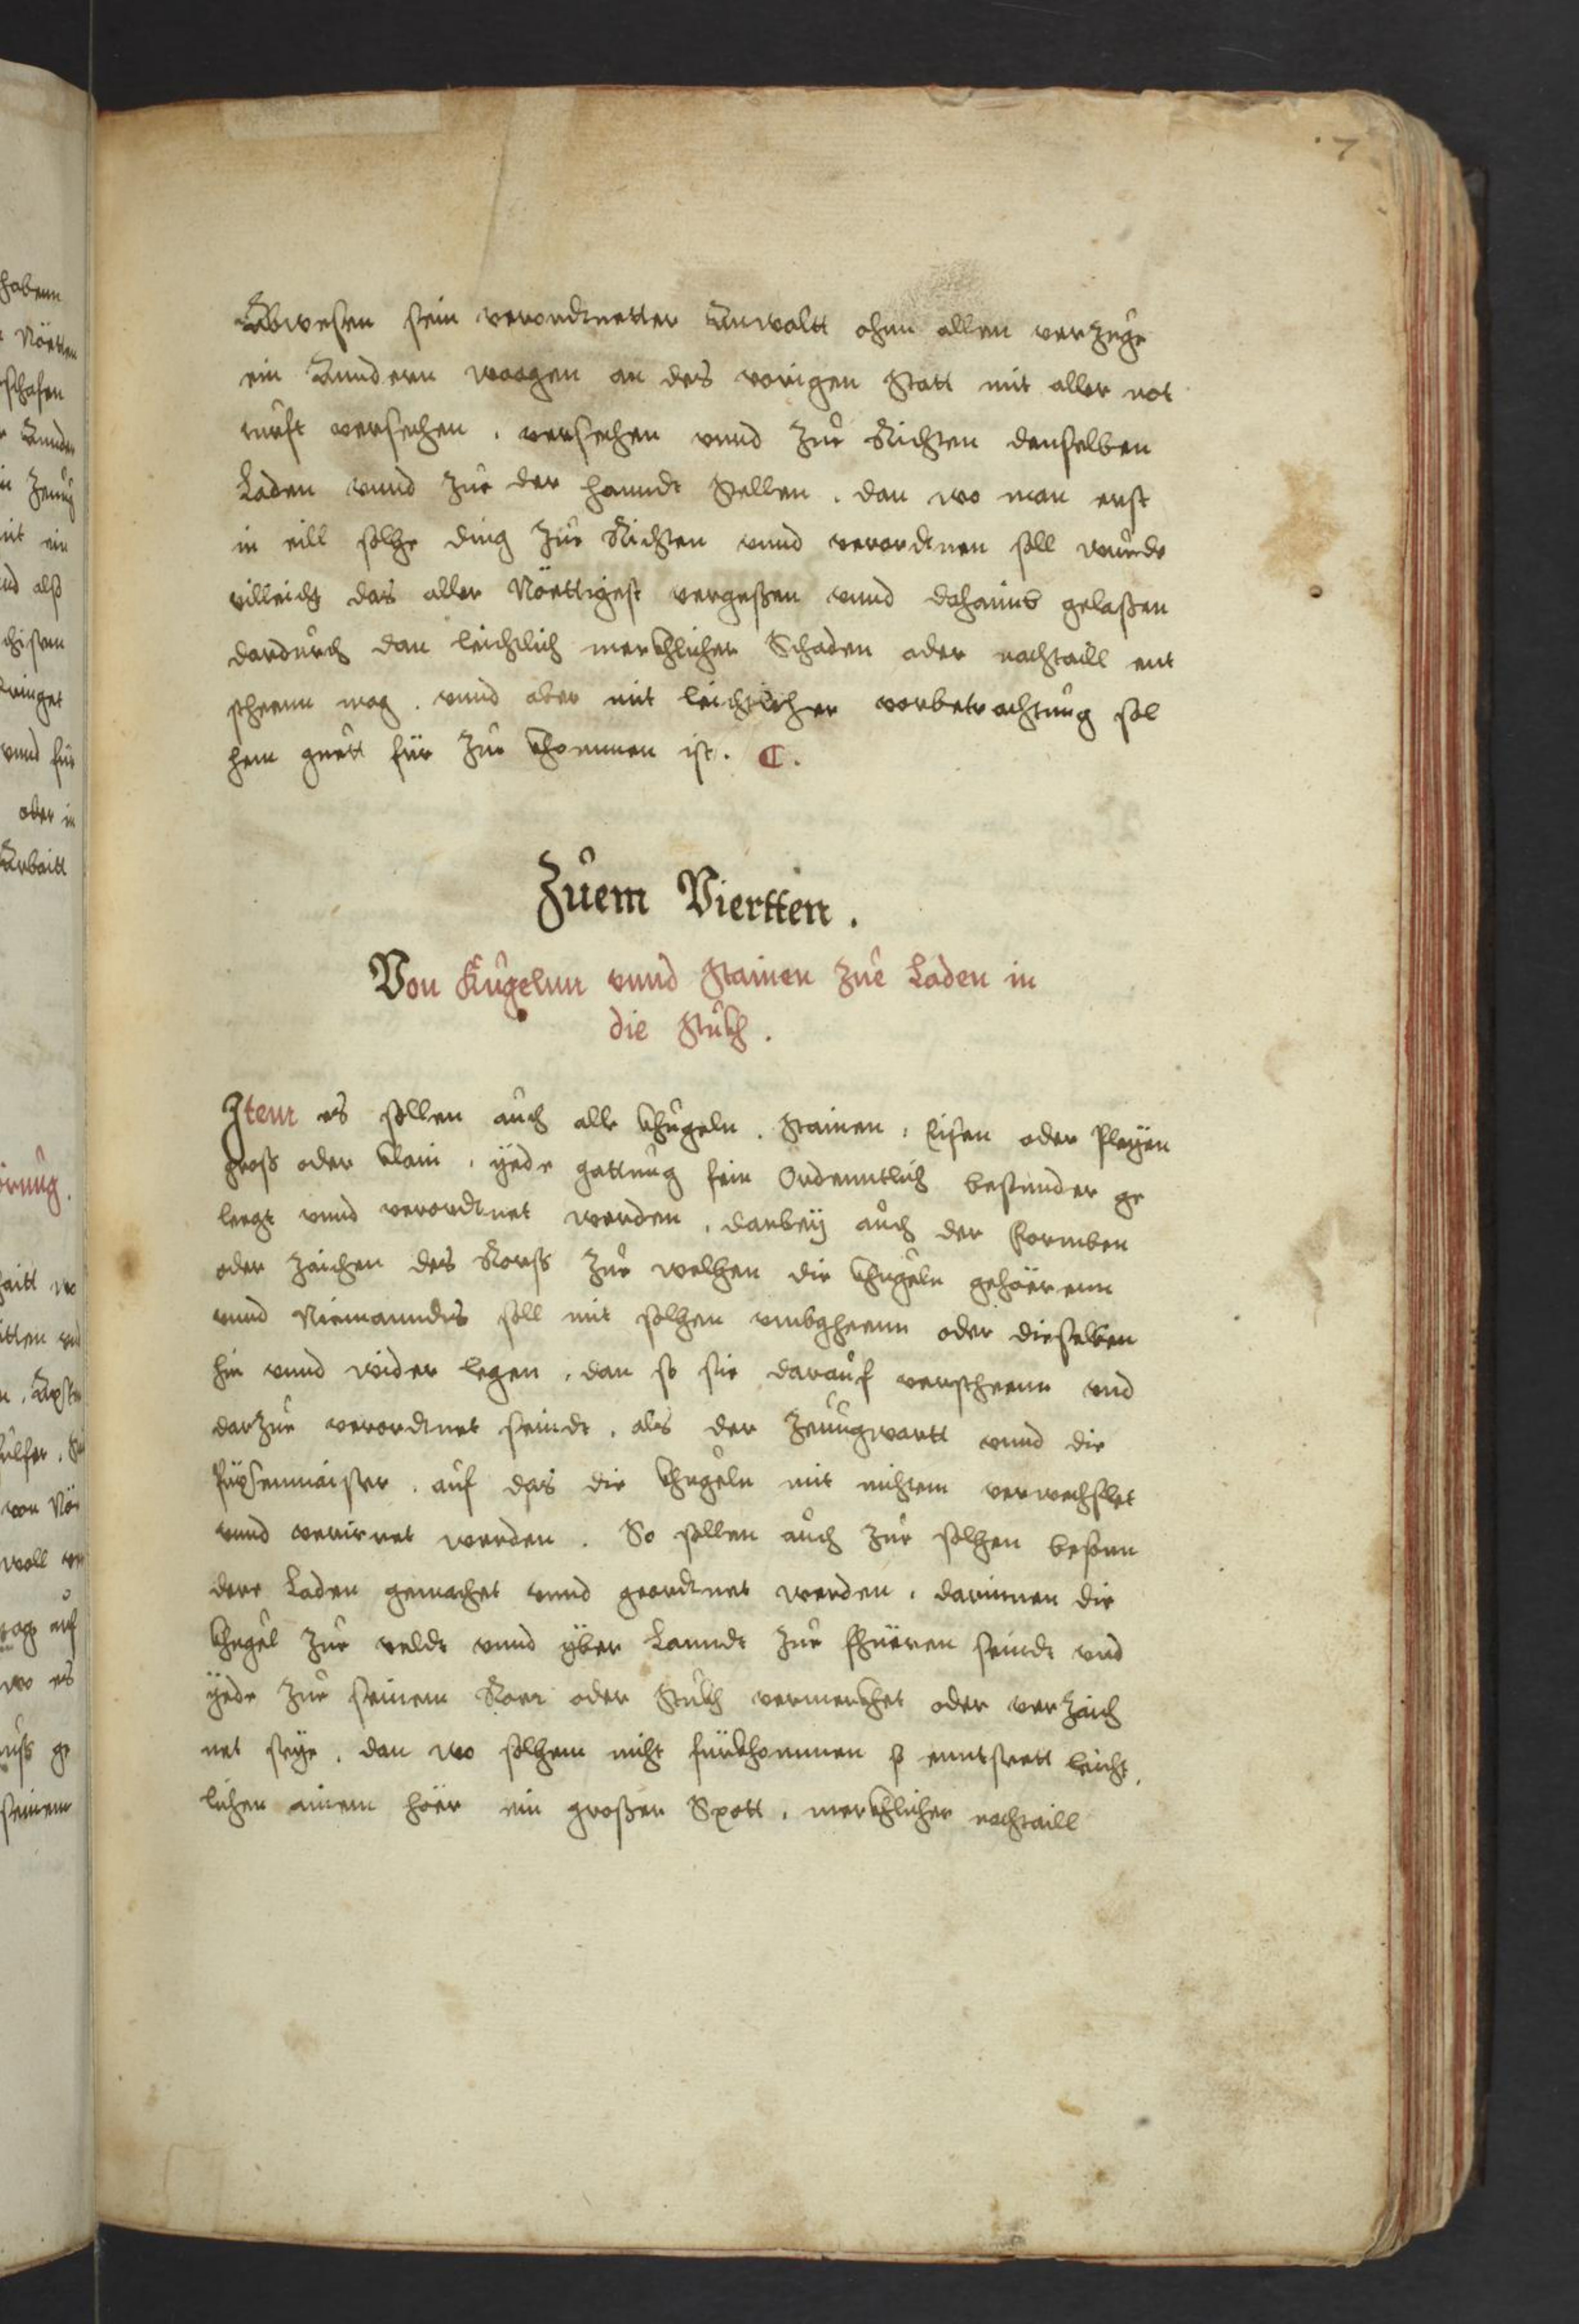 7
Abwesen sein verordtnetter Anwaltt ohnn allen verzuge
ein Anndern waagen an des vorigen Statt mit aller not
turft versechen, versechen vnnd zue Richten denselben
Laden vnnd zue der hanndt Stellen. dan wo man erst
in eill solhe ding zue Richten vnnd verordtnen soll wurde
villeicht das aller Nöettigest vergeßen vnnd dahaimb gelaßen
dardurch dan leichtlich merckhlicher Schaden oder nachtaill ent
stheenn mag. vnnd aber mit leichtlicher vorbetrachtung sol
hem guett für zue khommen ist. C.
Zuem Viertten.
Von Kugelnn vnnd Stainen zue Laden in
die Stukh.
Item es sollen auch alle khugeln. Stainen, Eisen oder Pleyen
groß oder klain, yede gattung sein Ordenntlich besunder ge
leegt vnnd verordtnet werden, darbey auch der Formben
oder zaichen des Rorß zue welhen die khugeln gehöerenn
vnnd Niemanndts soll mit solhen vmbgheenn oder dieselben
hin vnnd wider legen, dan so sie darauf verstheenn vnd
darzue verordtnet seindt, als der Zeuugwartt vnnd die
Püxsenmaister. auf das die khugeln mit nichtem verwechslet
vnnd verirret werden. So sollen auch zue solhen besonn
dere Laden gemachet vnnd geordtnet werden, darinnen die
khugel zue veldt vnnd yber Lanndt zue fhüeren seindt vnd
yede zue seinem Roer oder Stukh vermerkhet oder verzaich
net seye, dan wo solhem nicht fürkhommen so enntsteett leicht
lichen ainem höer ein großer Spott, merckhlicher nachtaill